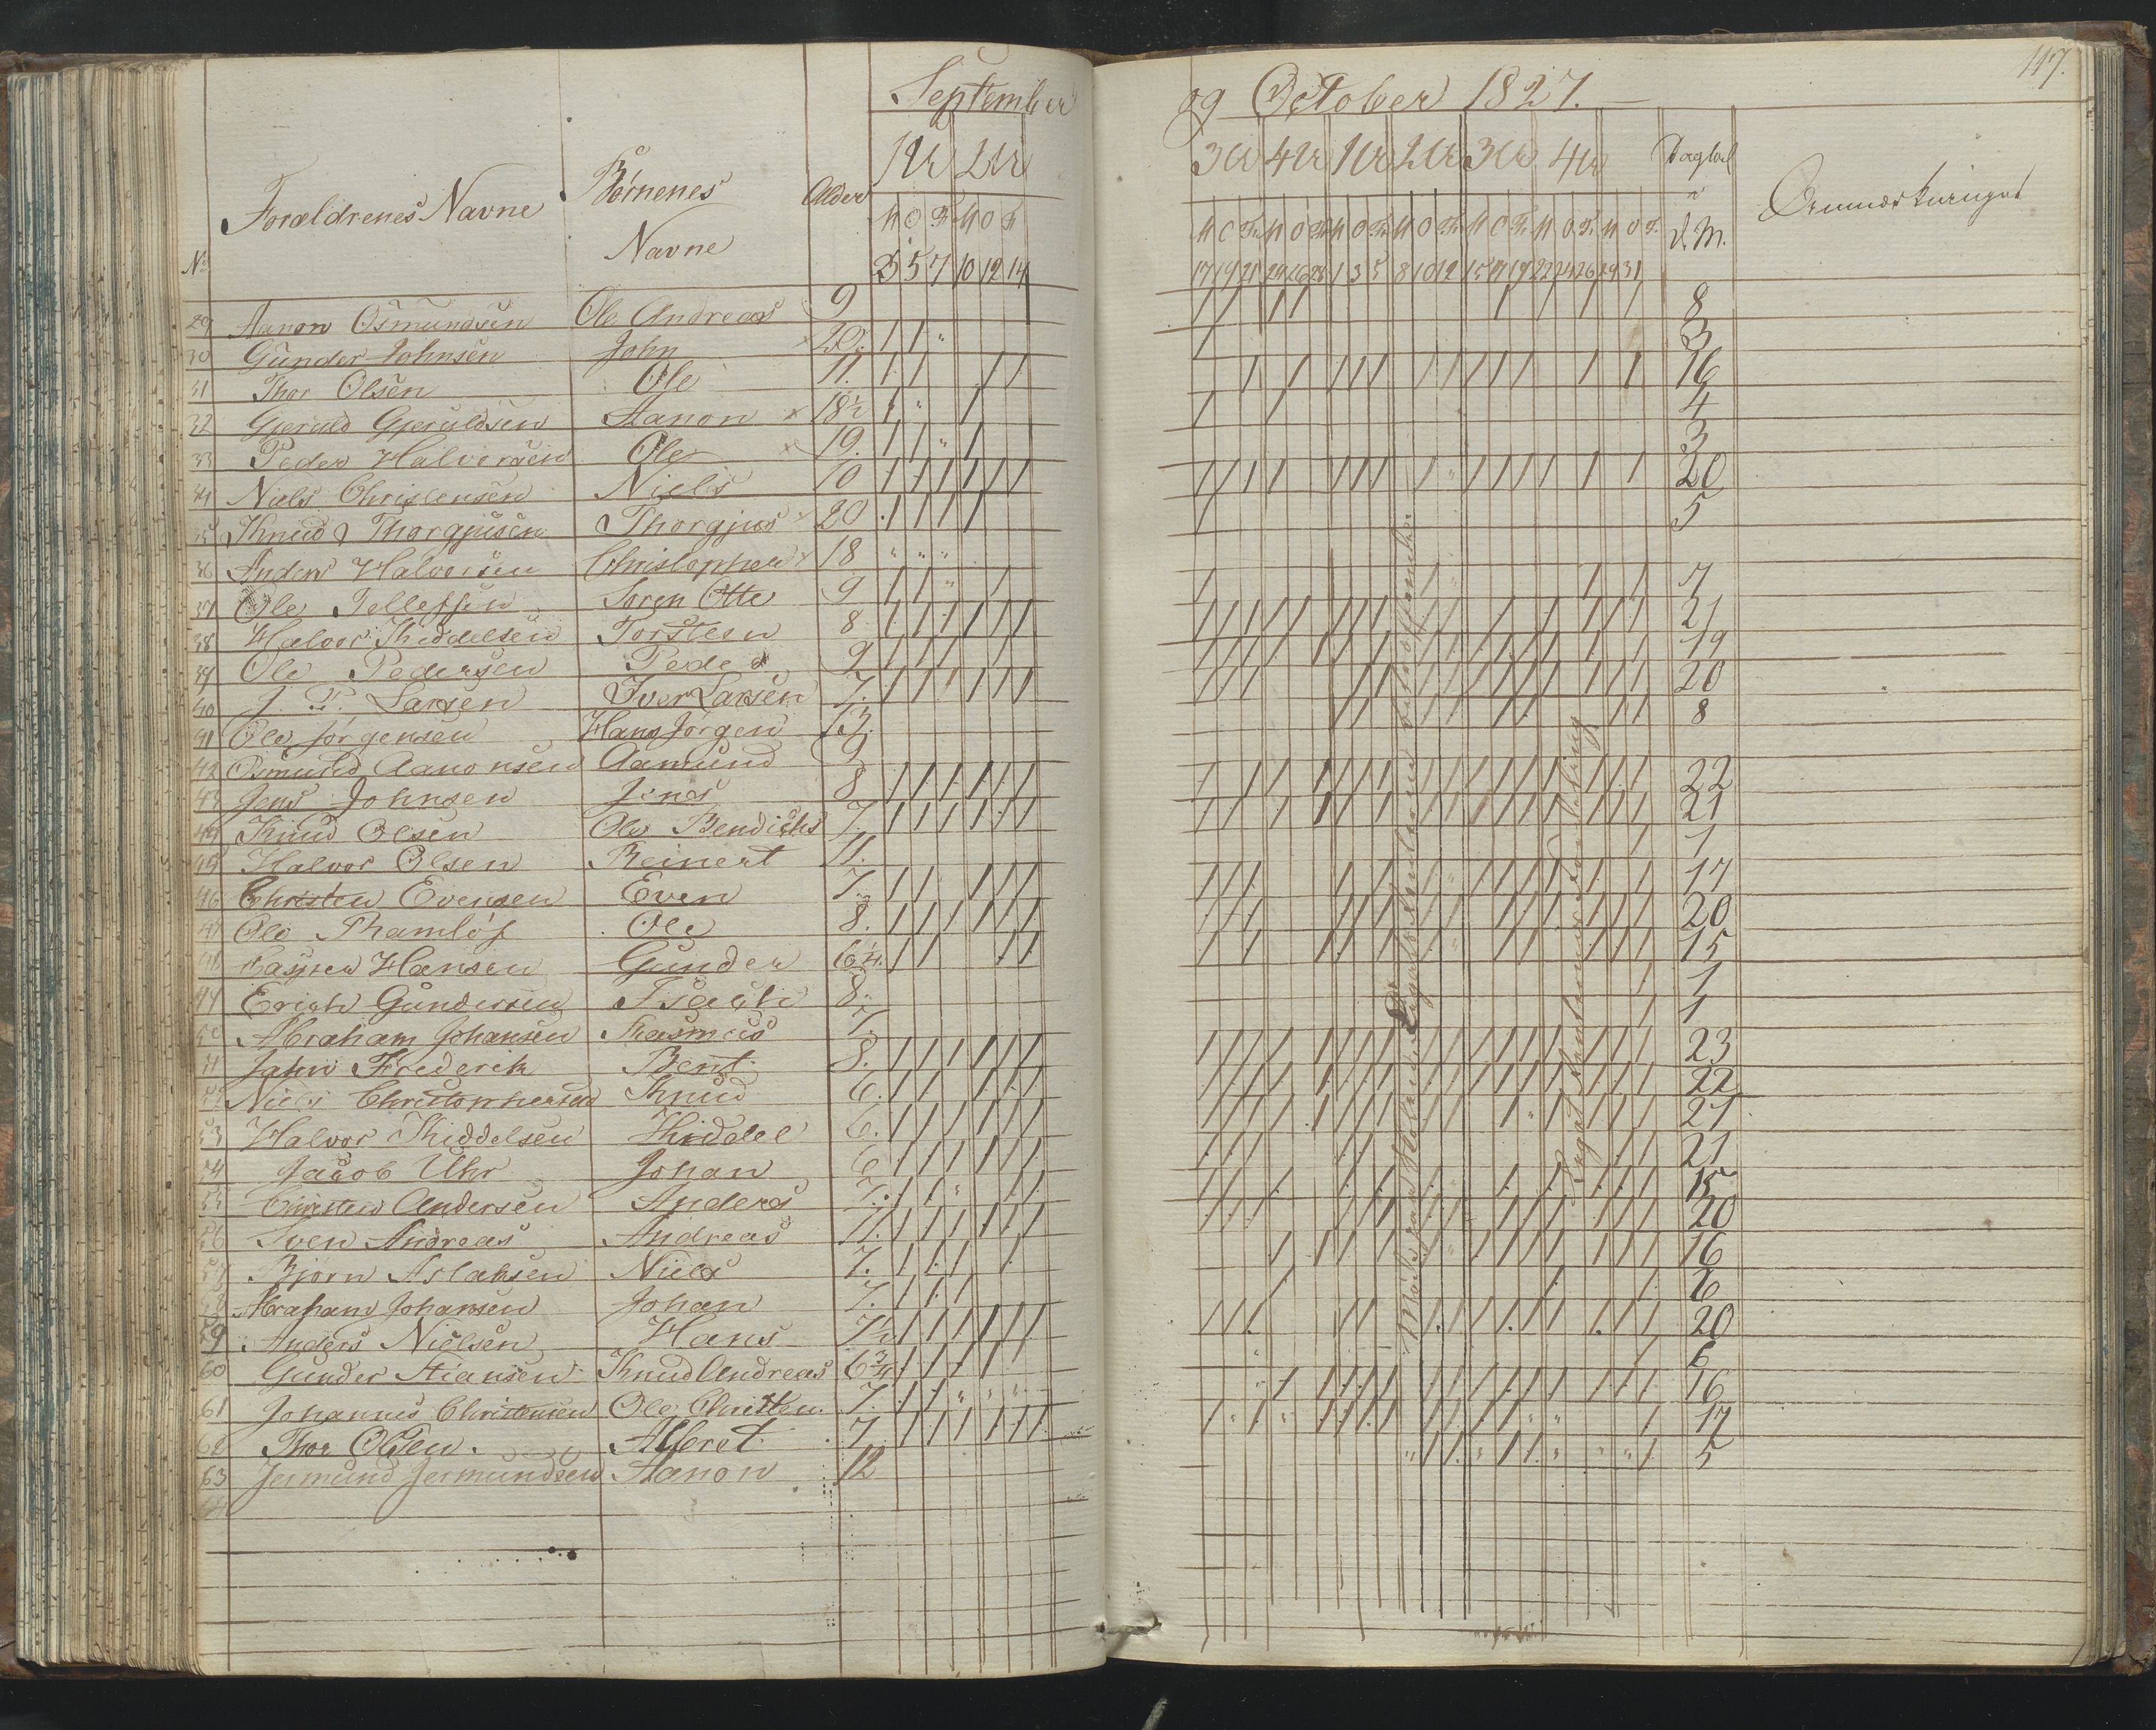 September
og October 1827.
117.
No
Forældrenes Navne
Børnenes
Navne
Alder
1U 2U
3U 4U 1U 2U 3U 4U
Dagtal
d. M.
M O F M O F
3 5 7 10 12 14
17 19 21 24 26 28 1 3 5 8 10 12 15 17 19 22 24 26 29 31
29 Aanon Osmundsen Ole Andreas 9 8
30 Gunder Johnsen John 20. 3
31 Thor Olsen Ole 11. 16
32 Gjeruld Gjeruldsen Aanon 18½ 4
33 Peder Halvorsen Ole 19. 3
34 Niels Christensen Niels 10 20
35 Knud Thorgjusen Thorgjus 20 5
36 Anders Halvorsen Christopher 18
37 Ole Tellefsen Søren Otto 9 7
38 Halvor Kiddelsen Torsten 8 21
39 Ole Pedersen Peder 9 19
40 J. P. Larsen Iver Larsen 7. 20
41 Ole Jørgensen Hans Jørgen 8
42 Osmund Aanonsen Aamund 9
43 Jens Johnsen Jens 8 22
44 Knud Olsen Ole Bendichs 7. 21
45 Halvor Olsen Reinert 11. 1
46 Christen Evensen Even 7. 17
47 Ole Ramløf Ole 8. 20
48 Casper Hansen Gunder 6¼. 15
49 Erich Gundersen Isach 8. 1
50 Abraham Johansen Rasmus 7. 1
51 Jahn Frederik Bent 8. 23
52 Niels Christophersen Knud 6. 22
53 Halvor Kiddelsen Kiddel 6. 21
54 Jacob Uhr Johan 6 21
55 Christen Andersen Anders 7. 15
56 Sven Andreas Andreas 11. 20
57 Bjørn Aslaksen Niels 7. 16
58 Abraham Johansen Johan 7. 6
59 Anders Nielsen Hans 7½ 20
60 Gunder Stiansen Knud Andreas 6¾ 6
61 Johannes Christensen Ole Christen. 7. 16
62 Thor Olsen. Alberet 7 17
63 Jermund Jermundsen Aanon 12 5
64